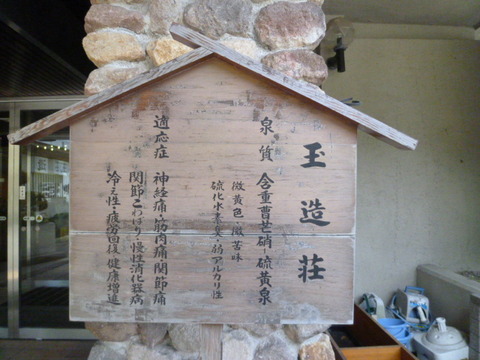 玉造荘
泉質 含重曹芒硝-硫黄泉
微黄色・微苦味
硫化水素臭・弱アルカリ性
適応症 神経痛・筋肉痛・関節痛
関節こわばり・慢性消化器病
冷え性・疲労回復・健康増進